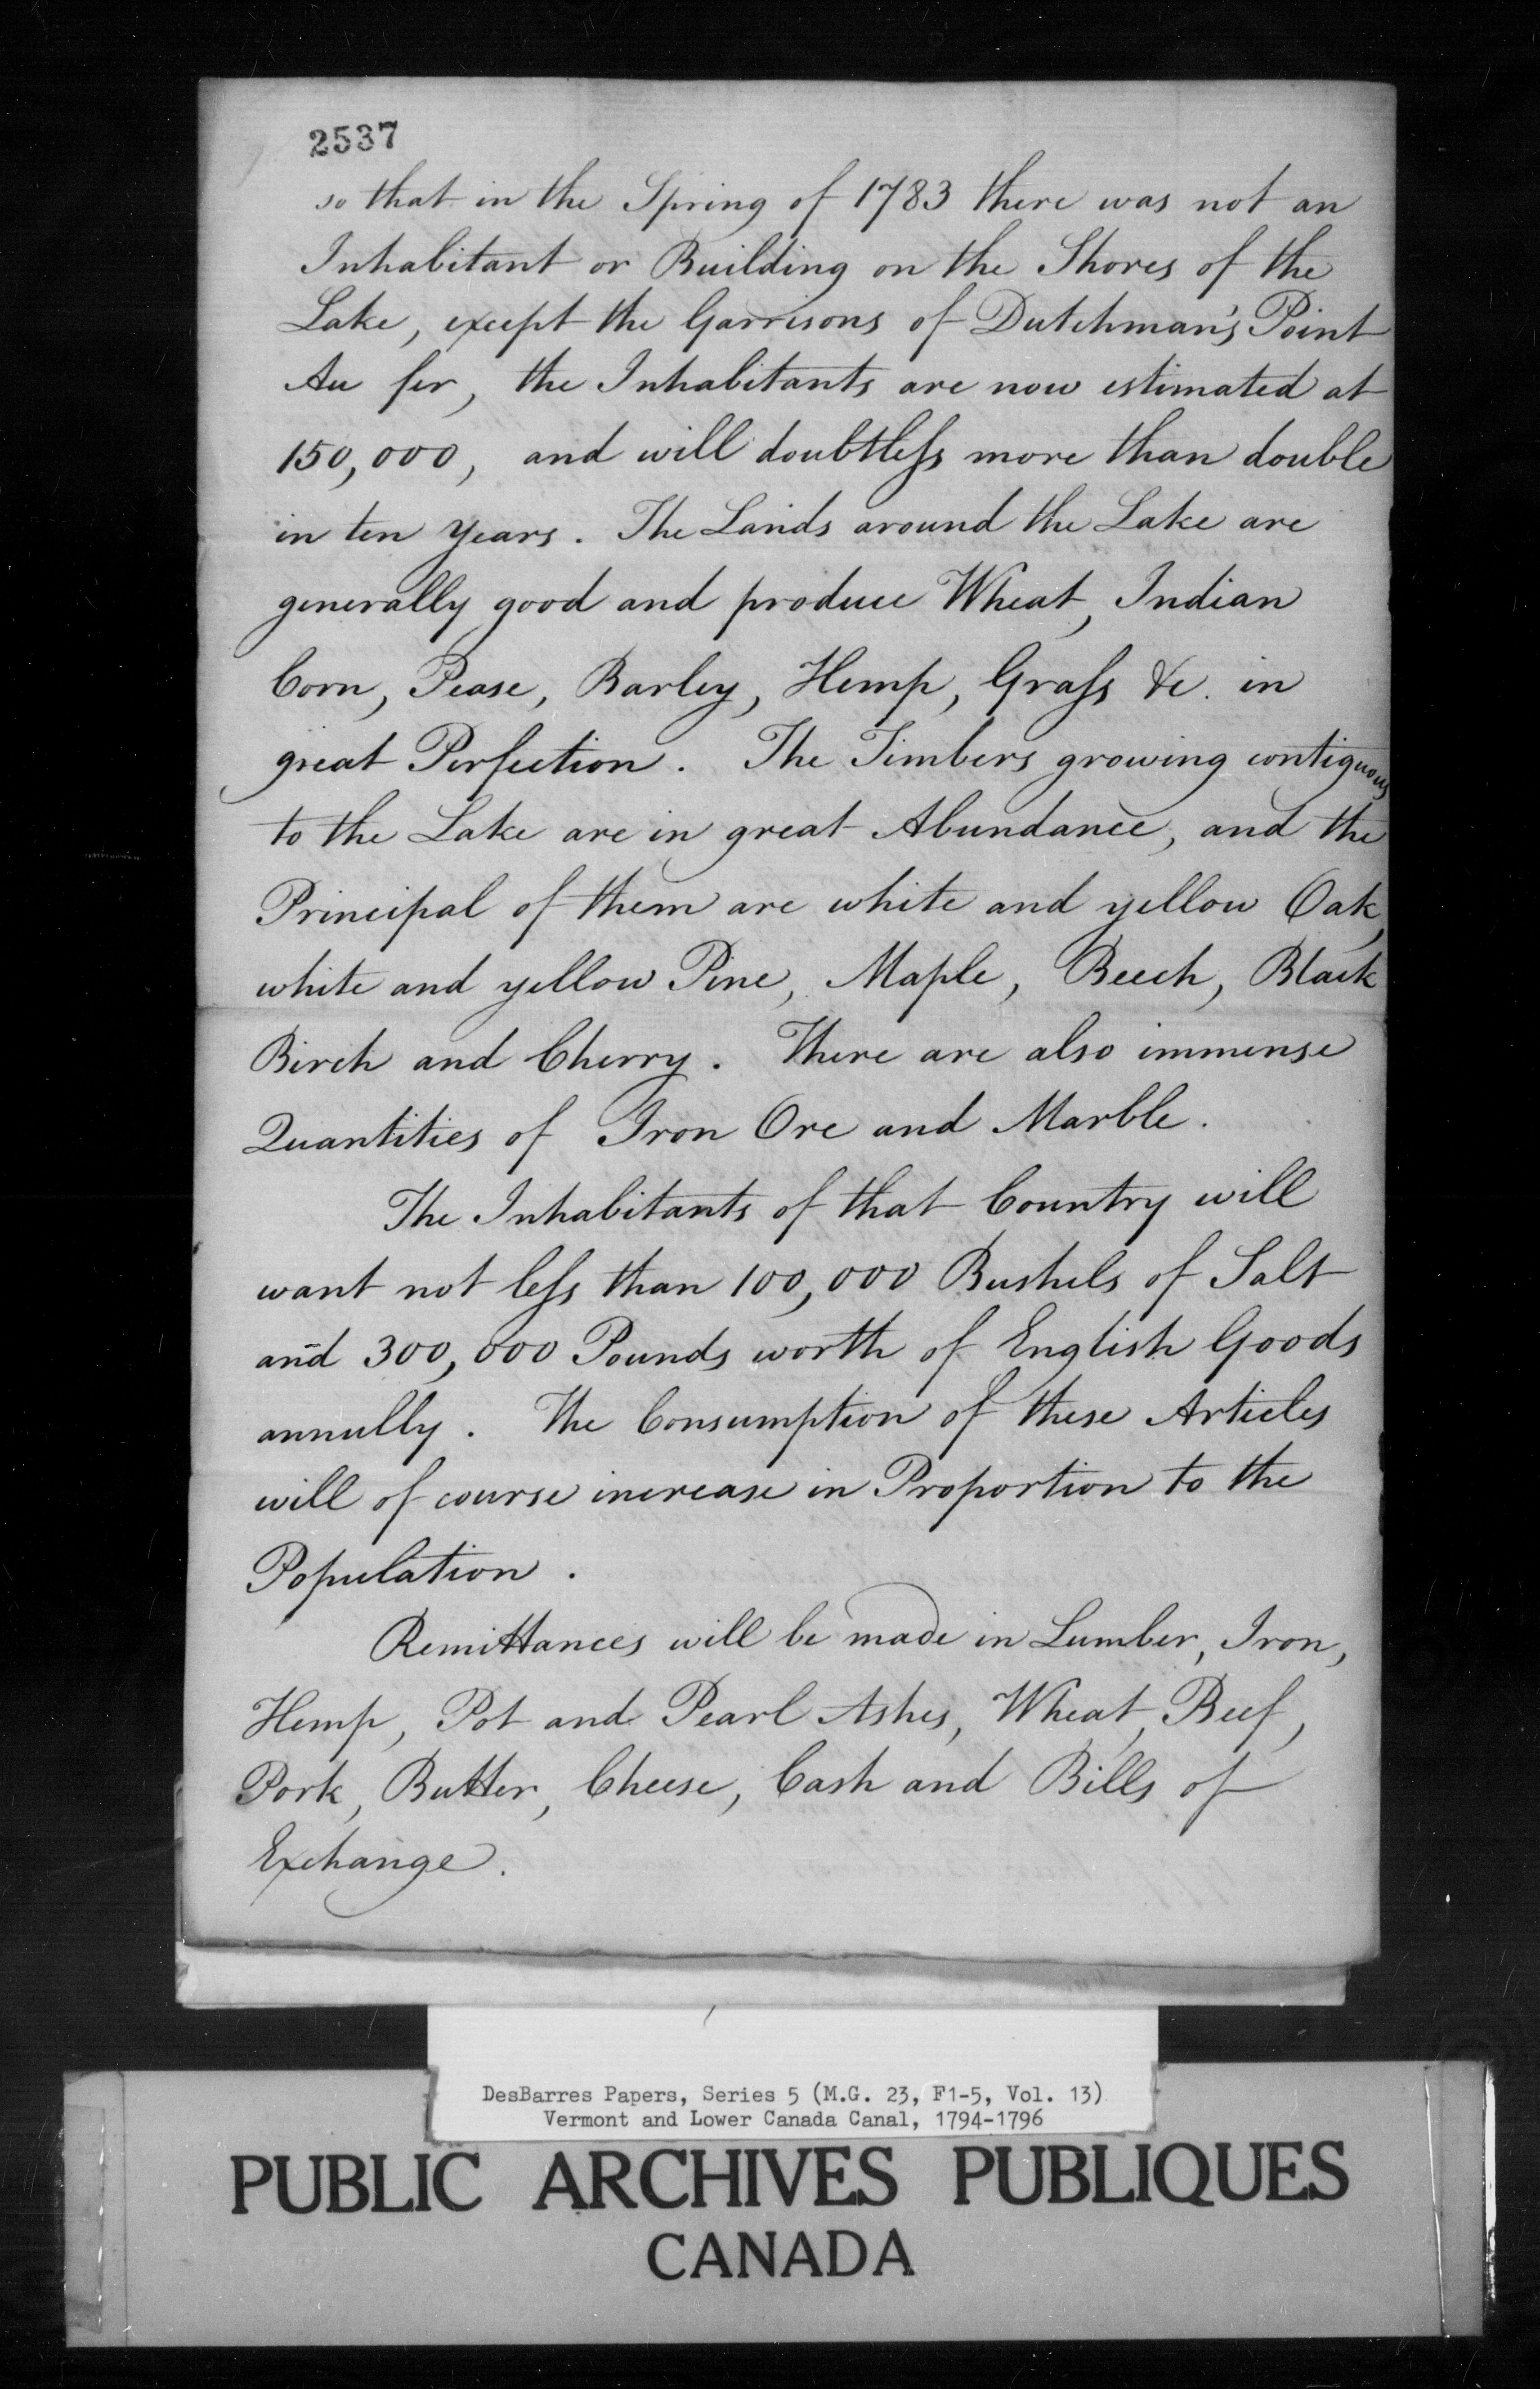 2537
so that in the Spring of 1783 there was not an
Inhabitant or Building on the Shores of the
Lake, except the Garrisons of Dutchman's Point
Au fer, the Inhabitants are now estimated at
150,000, and will doubtleſs more than double
in ten Years. The Lands around the Lake are
generally good and produce Wheat, Indian
Corn, Pease, Barley, Hemp, Graſs &c. in
great Perfection. The Timbers growing contiguous
to the Lake are in great Abundance, and the
Principal of them are white and yellow Oak,
white and yellow Pine, Maple, Beech, Black
Birch and Cherry. There are also immense
Quantities of Iron Ore and Marble.
The Inhabitants of that Country will
want not leſs than 100,000 Bushels of Salt
and 300,000 Pounds worth of English Goods
annully. The Consumption of these Articles
will of course increase in Proportion to the
Population.
Remittances will be made in Lumber, Iron,
Hemp, Pot and Pearl Ashes, Wheat, Beef,
Pork, Butter, Cheese, Cash and Bills of
Exchange.
DesBarres Papers, Series 5 (M.G. 23, F1-5, Vol. 13)
Vermont and Lower Canada Canal, 1794-1796
PUBLIC ARCHIVES PUBLIQUES
CANADA